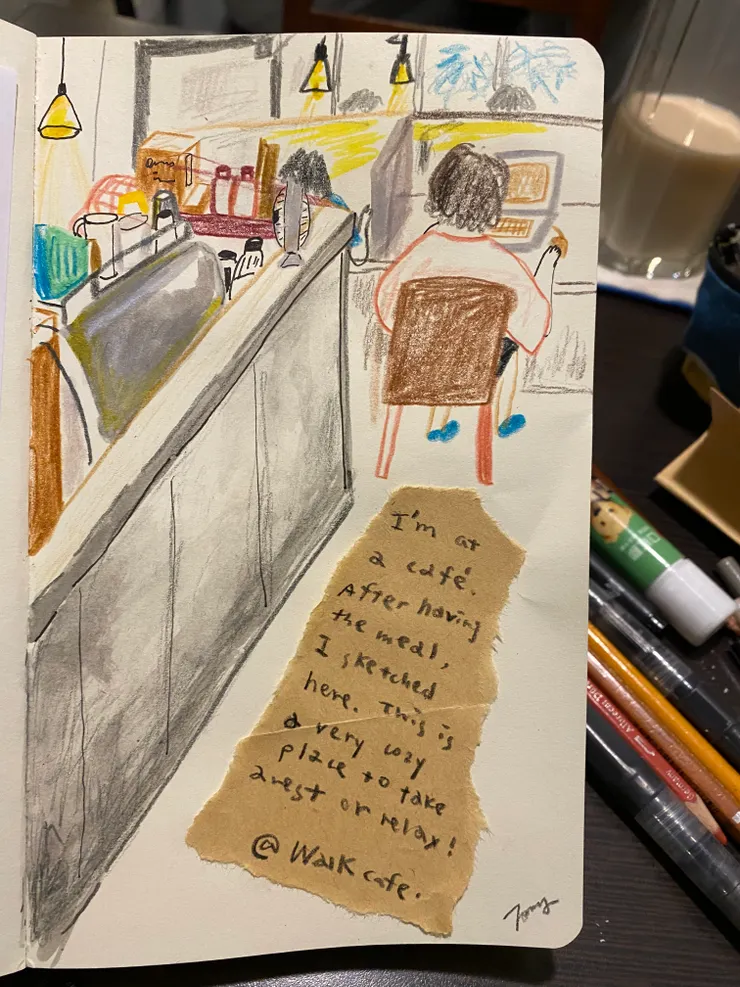 I'm at
a café.
After having
the meal,
I sketched
here. This is
a very cozy
place to take
a rest or relax!
@ Walk cafe.